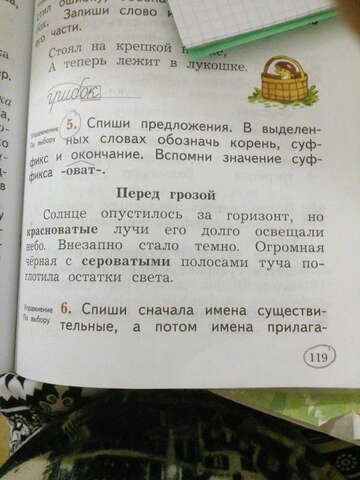 Запиши слово
его части.
Стоял на крепкой
А теперь лежит в лукошке.
грибок
Упражнение
По выбору
5. Спиши предложения. В выделен-
ных словах обозначь корень, суф-
фикс и окончание. Вспомни значение суф-
фикса -оват-.
Перед грозой
Солнце опустилось за горизонт, но
красноватые лучи его долго освещали
небо. Внезапно стало темно. Огромная
чёрная с сероватыми полосами туча по-
глотила остатки света.
Упражнение
По выбору
6. Спиши сначала имена существи-
тельные, а потом имена прилага-
119